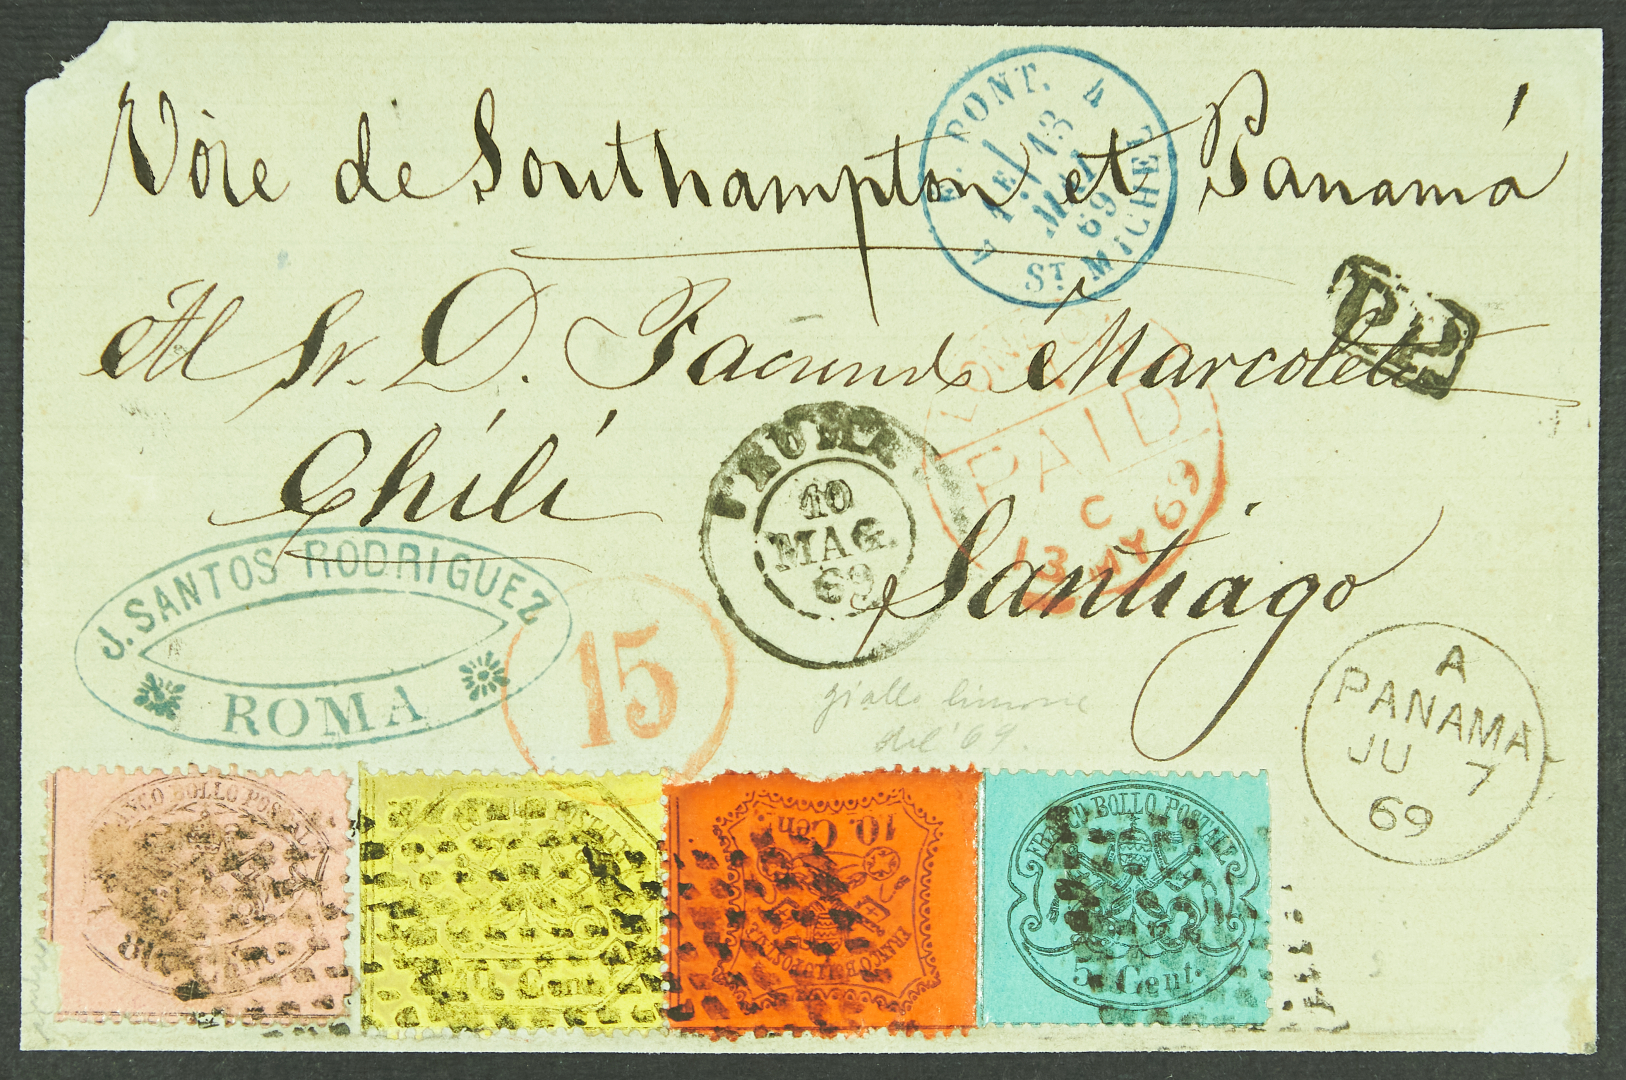 Vöie de Southampton et Panamá
E. PONT. 4
1 13
MAI
69
ST MICHEL
Al Sr. D. Facundo Marcoleta
PD
LONDON
PAID
C
13 MY 69
Chili
ROMA
10
MAG.
69
Santiago
J. SANTOS RODRIGUEZ
ROMA
15
giallo limone
del '69.
A
PANAMA
JU 7
69
FRANCO BOLLO POSTALE
POSTALE
40 Cent.
FRANCO BOLLO POSTALE
10. Cent.
FRANCO BOLLO POSTALE
5 Cent.